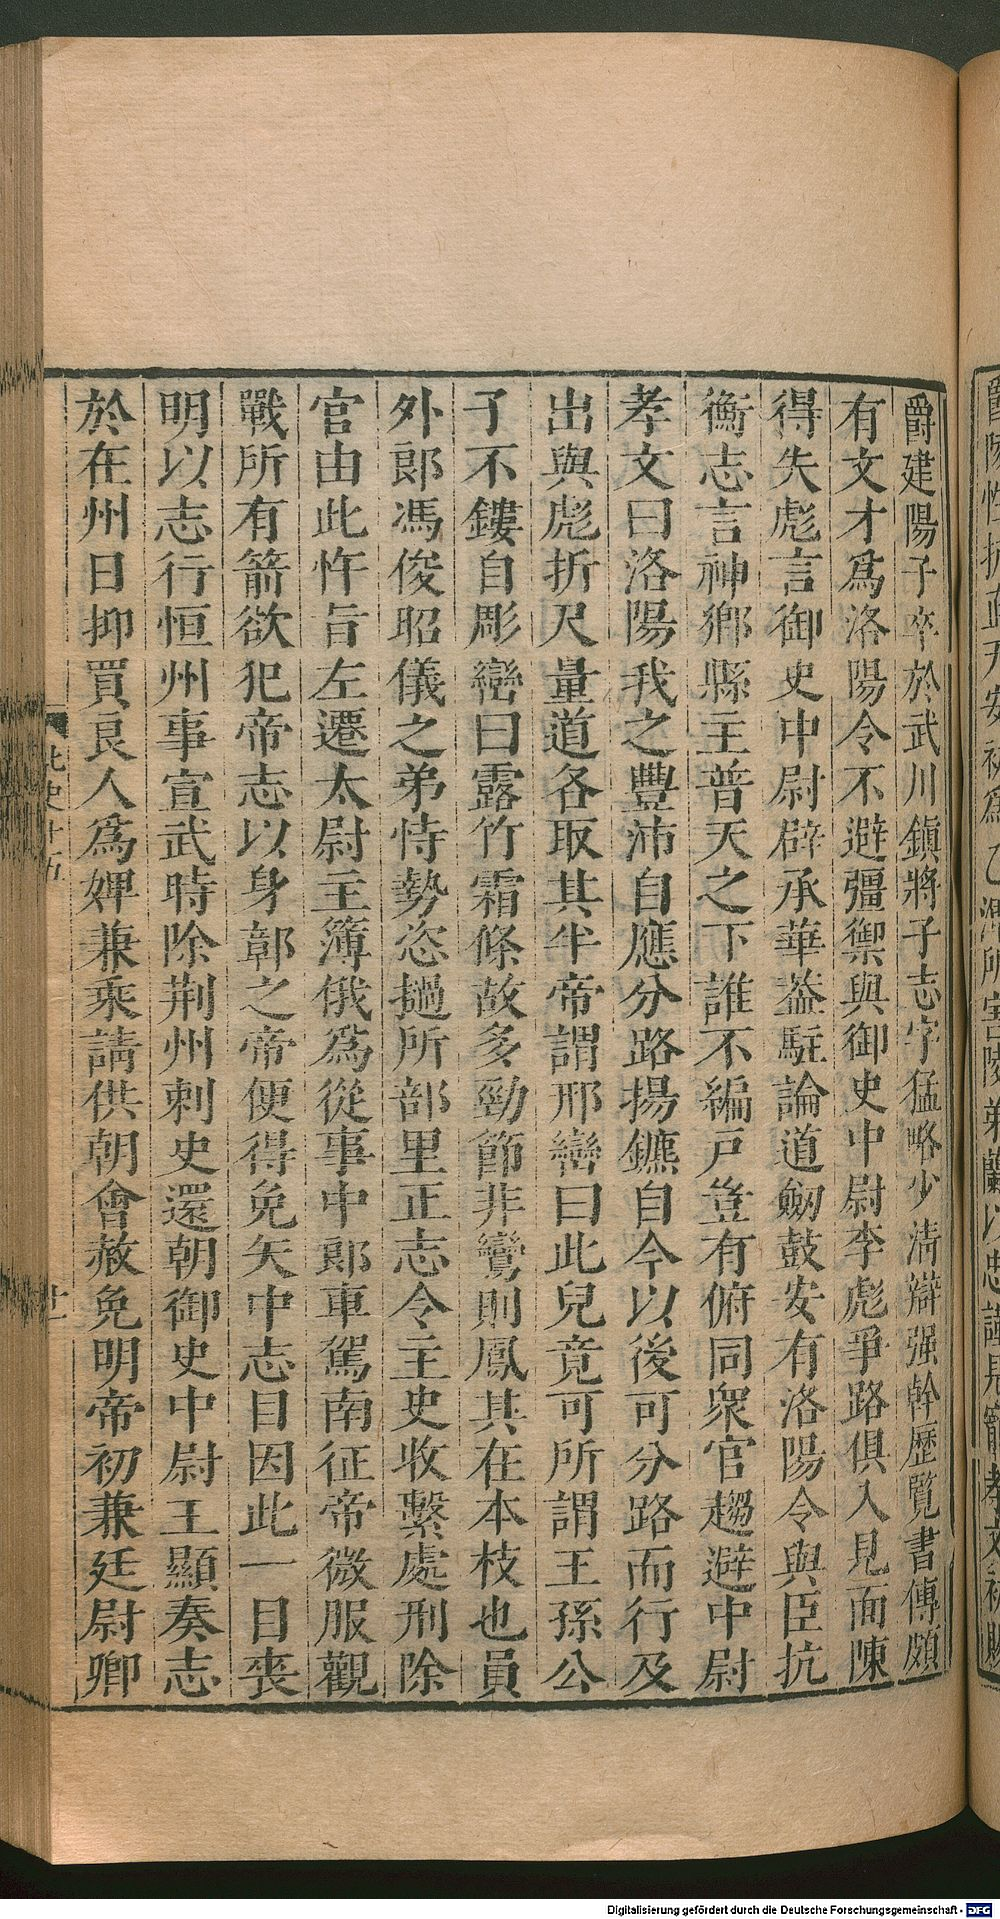 爵建陽子卒於武川鎮將子志字猛略少清辯强幹歷覽書傳頗
有文才爲洛陽令不避彊禦與御史中尉李彪爭路俱入見面陳
得失彪言御史中尉辟承華葢駐論道劒鼓安有洛陽令與臣抗
衡志言神鄉縣主普天之下誰不編戸豈有俯同衆官趨避中尉
孝文曰洛陽我之豐沛自應分路揚鑣自今以後可分路而行及
出與彪折尺量道各取其半帝謂邢巒曰此兒竟可所謂王孫公
子不鏤自彫巒曰露竹霜條故多勁節非鸞則鳳其在本枝也員
外郎馮俊昭儀之弟恃勢恣撾所部里正志令主史收繫處刑除
官由此忤旨左遷太尉主簿俄爲從事中郎車駕南征帝微服觀
戰所有箭欲犯帝志以身鄣之帝便得免矢中志目因此一目喪
明以志行恒州事宣武時除荆州刺史還朝御史中尉王顯奏志
於在州日抑買良人爲婢兼乘請供朝會赦免明帝初兼廷尉卿
北史十五
Digitalisierung gefördert durch die Deutsche Forschungsgemeinschaft - DFG